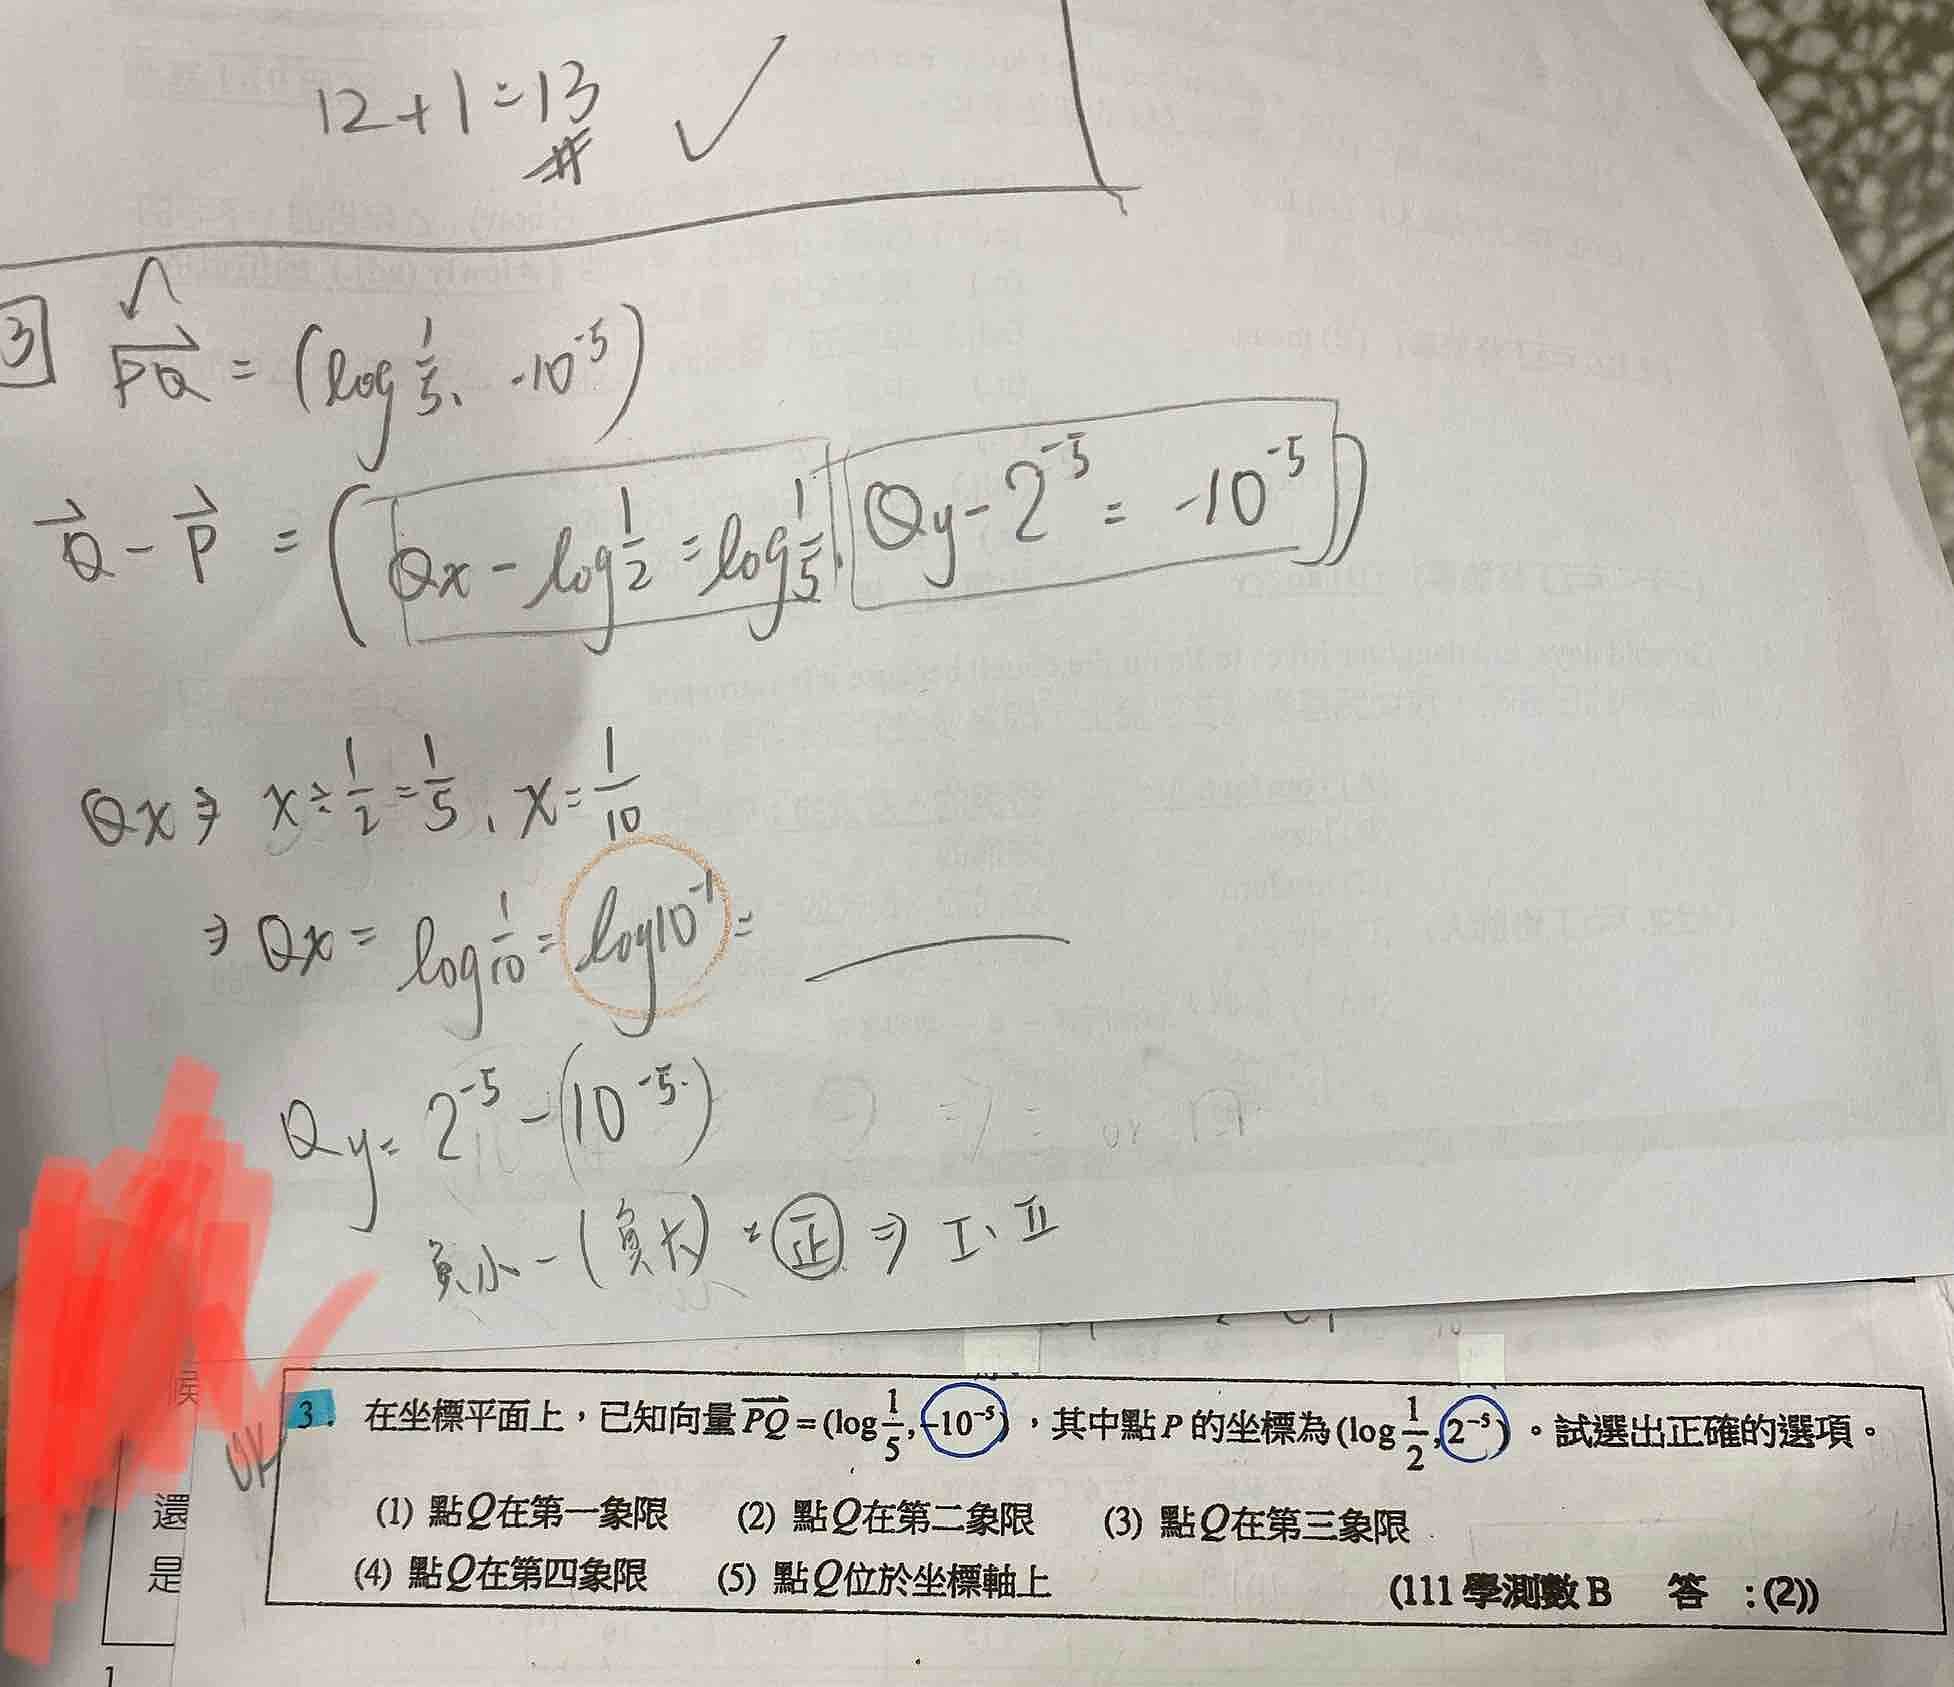 12+1=13
3 PQ = (log 1/5, -10⁻⁵)
Q - P = (Qx - log 1/2 = log 1/5, Qy - 2⁻⁵ = -10⁻⁵)
Qx ⇒ x ÷ 1/2 = 1/5, x = 1/10
⇒ Qx = log 1/10 = log10⁻¹ =
Qy = 2⁻⁵ - (10⁻⁵)
負小 - (負大) = 正 ⇒ I、II
候
還
是
1
3. 在坐標平面上，已知向量 PQ = (log 1/5, -10⁻⁵)，其中點 P 的坐標為 (log 1/2, 2⁻⁵)。試選出正確的選項。
(1) 點Q在第一象限 (2) 點Q在第二象限 (3) 點Q在第三象限
(4) 點Q在第四象限 (5) 點Q位於坐標軸上 (111 學測數 B 答 : (2))